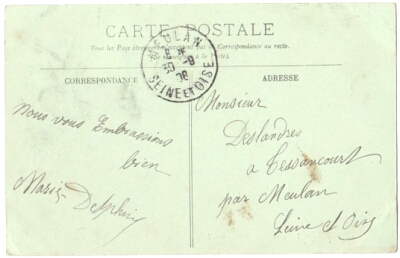 CARTE POSTALE
Tous les Pays étrangers n'acceptent pas la Correspondance au recto.
MEULAN
30 -9
08
SEINE ET OISE
CORRESPONDANCE
ADRESSE
Nous vous Embrassons
bien
Marie Delphine
Monsieur
Deslandres
a Tessancourt
par Meulan
Seine et Oise